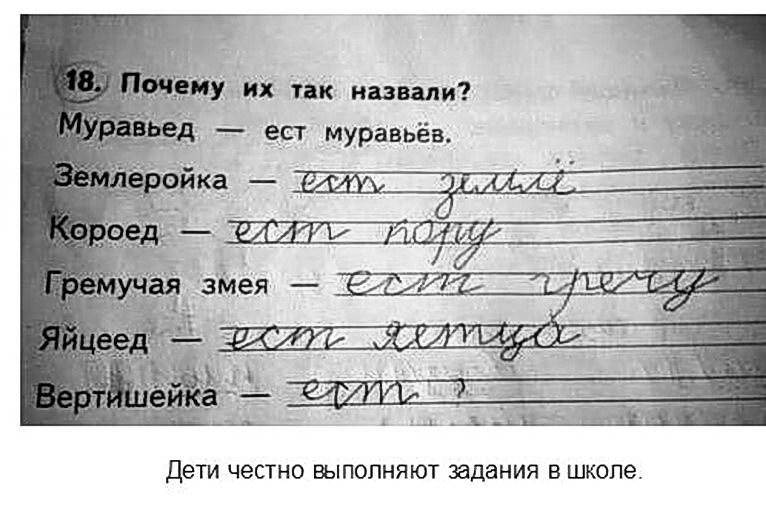 18. Почему их так назвали?
Муравьед — ест муравьёв.
Землеройка — ест землё
Короед — ест пору
Гремучая змея — ест гречу
Яйцеед — ест яетца
Вертишейка — ест ?
Дети честно выполняют задания в школе.